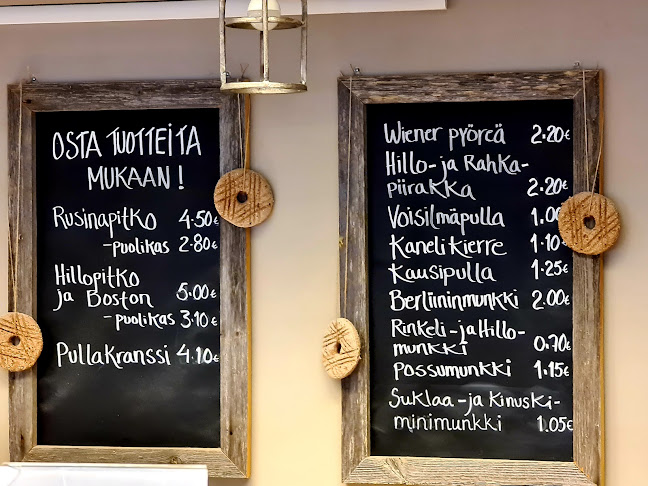 OSTA TUOTTEITA
MUKAAN!
Rusinapitko 4.50€
-puolikas 2.80€
Hillopitko
ja Boston 5.00€
-puolikas 3.10€
Pullakranssi 4.10€
Wiener pyöreä 2.20€
Hillo- ja Rahka-
piirakka 2.20€
Voisilmäpulla 1.00€
Kaneli Kierre 1.10€
Kausipulla 1.25€
Berliininmunkki 2.00€
Rinkeli- ja Hillo-
munkki 0.70€
Possumunkki 1.15€
Suklaa- ja Kinuski-
minimunkki 1.05€